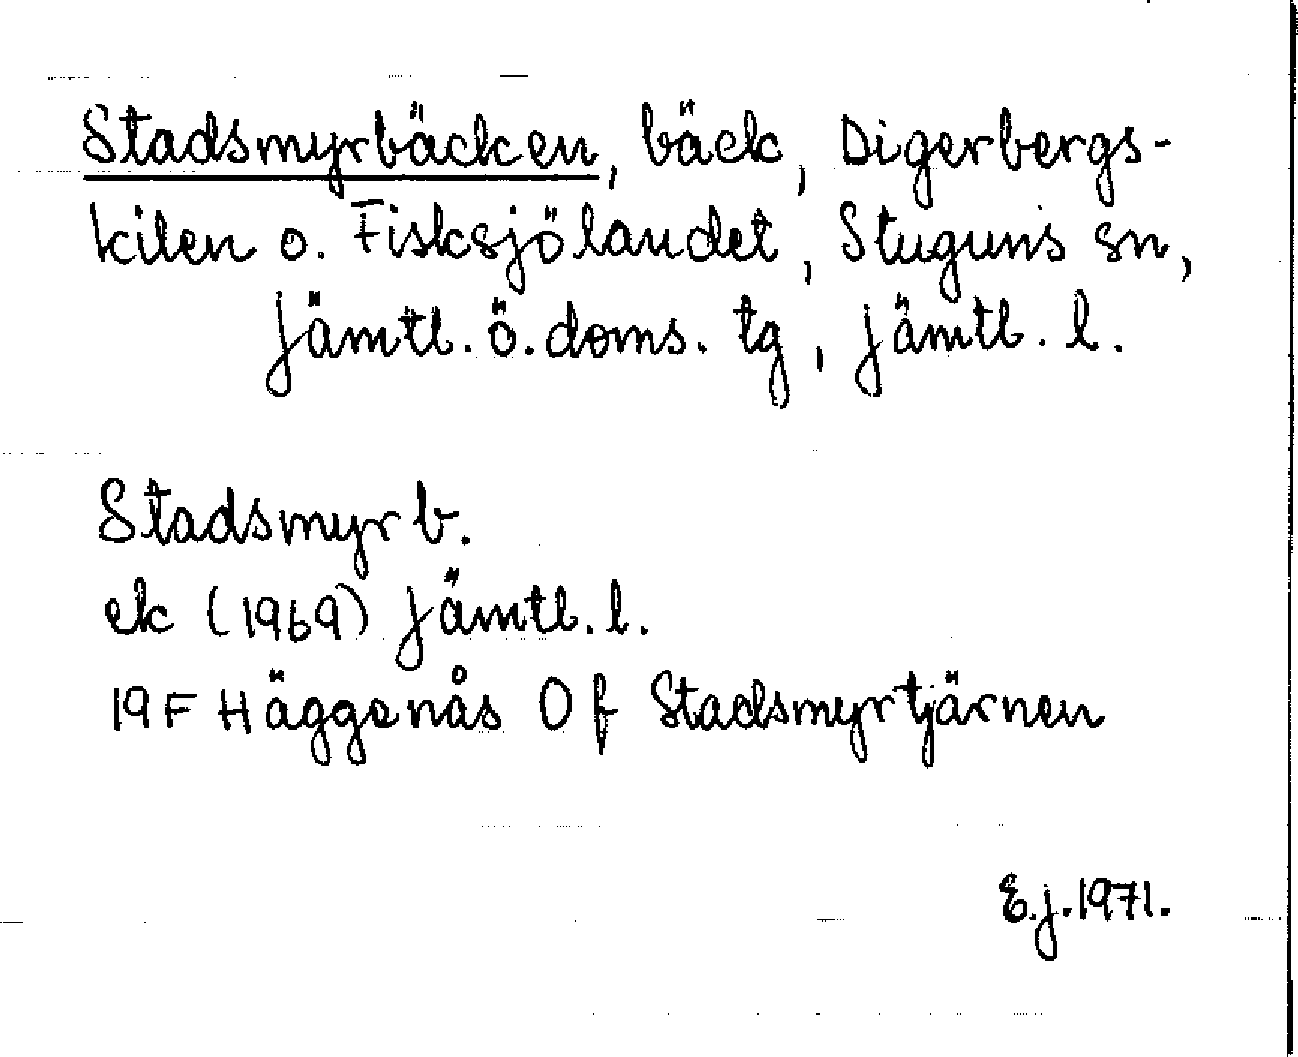 Stadsmyrbäcken, bäck, Digerbergs-
kilen o. Fisksjölandet, Stuguns sn,
Jämtl. ö. doms. tg, Jämtl. l.
Stadsmyrb.
ek (1969) Jämtl. l.
19F Häggenås 0f Stadsmyrtjärnen
E.J. 1971.